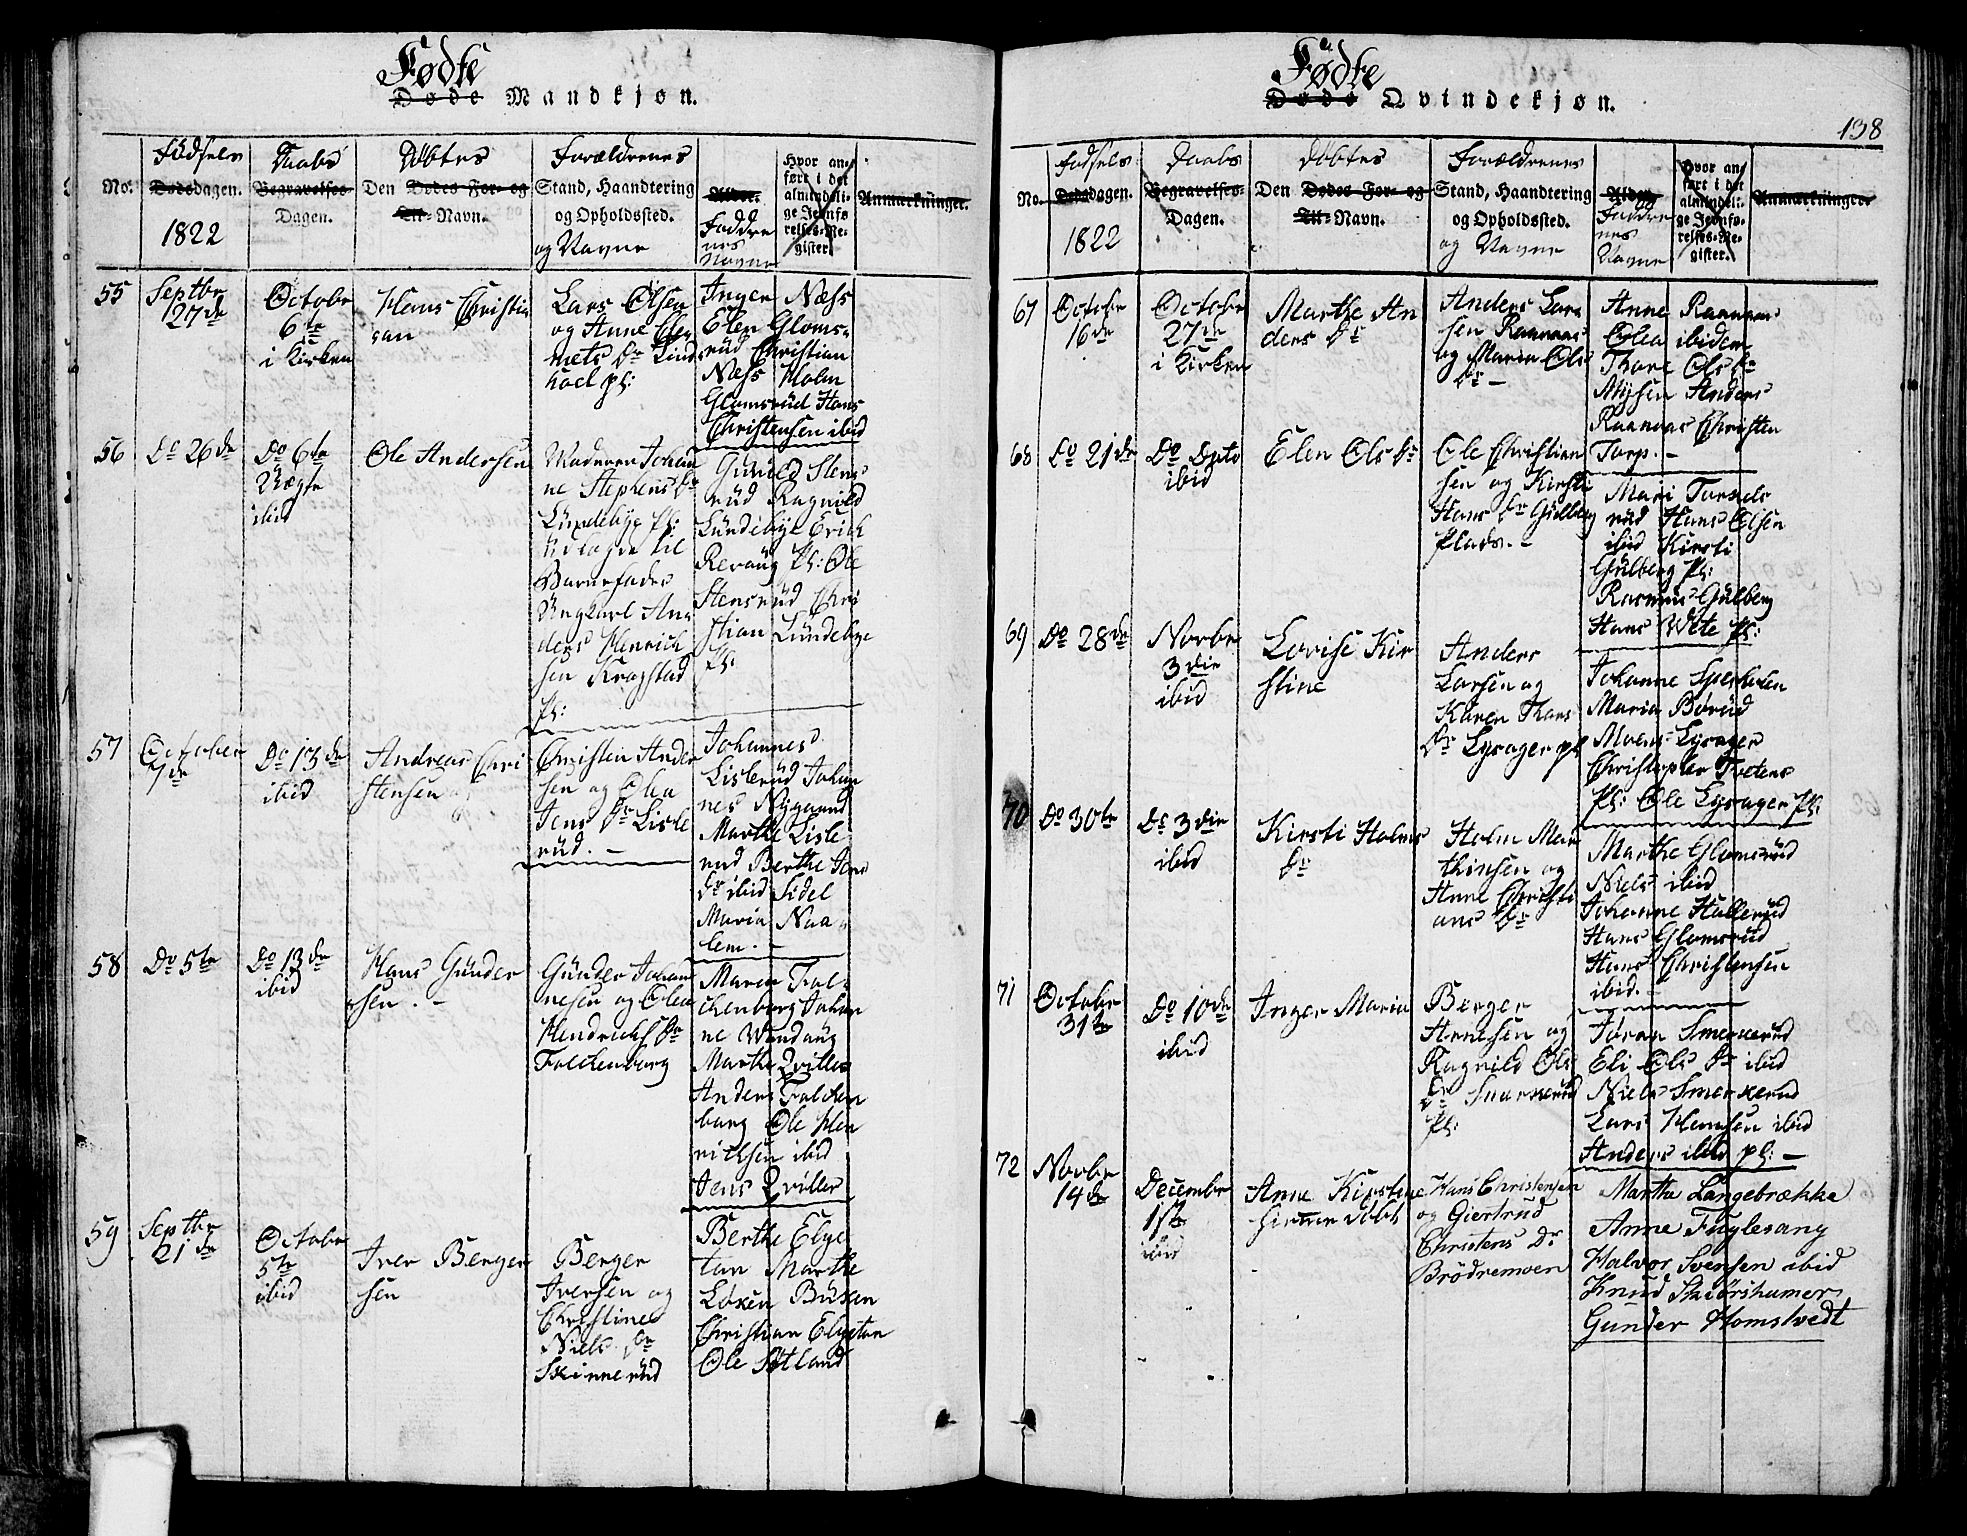 Fødte
Døde Mandkjøn.
No.
Fødsels
Dødsdagen.
1822
Daabs
Begravelses-
Dagen.
Døbtes
Den Dødes For- og
Til-Navn.
Forældrenes
Stand, Haandtering
og Opholdssted.
og Navne
Alder.
Faddre
nes
Navne
Hvor an-
ført i det
almindeli-
ge Jevnfø-
relses-Re-
gister.
Anmærkninger.
55
Septbr
27de
Octobr
6te
i Kirken
Hans Christia
san
Lars Olsen
og Anne Cle
mets Dr Lind
hoel pl:
Inger Næss
Elen Gloms-
rüd Christian
Næss Holm
Glomsrüd Hans
Christensen ibid
56
Do 26de
Do 6te
Nægte
ibid
Ole Andersen
Moderen Johan
ne Stephens Dr
Lündebye Pl:
Udlagde til
Barnefader
Ungkarl An
ders Henrich
sen Kragstad
Pl:
Gunild Stens
rüd Ragnild
Lündebye Erich
Revaug Pl: Ole
Stensrüd Chri
stian Lündebye
Pl:
57
October
7de
Do 13de
ibid
Andreas Chri
stensen
Christen Ander
sen og Olea
Jens Dr Lisle
rüd. -
Johannes
Lislerüd Johan
nes Nygaard
Marthe Lisle
rud Berthe Jens
Dr ibid Sidel
Maria Naa
lem. -
58
Do 5te
Do 13de
ibid
Hans Günder
sen. -
Günder Johan
nesen og Olea
Hendrichs Dr
Falckenborg
Maren Fal-
ckenborg Johan
ne Wandaüg
Marthe Qviller
Anders Falcken
borg Ole Hen
richsen ibid
Jens Qviller
59
Septbr
21de
Octobr
5te
ibid
Iver Berger
sen
Berger
Iversen og
Christine
Niels Dr
Skinnerüd
Berthe Elge
tun Marthe
Løken Büxen
Christian Elgetun
Ole Østland
Fødte
Døde Qvindekjøn.
138
No.
Fødsels
Dødsdagen.
1822
Daabs
Begravelses-
Dagen.
Døbtes
Den Dødes For- og
Til-Navn.
Forældrenes
Stand, Haandtering
og Opholdssted.
og Navne
Alder.
Faddre
nes
Navne
Hvor an-
ført i det
almindeli-
ge Jevnfø-
relses-Re-
gister.
Anmærkninger
67
Octobr
16de
October
27de
i Kirken
Marthe An
ders Dr
Anders Lar
sen Raanaas
og Maria Ols
Dr -
Anne Raanaas
Olea ibidem
Thore Ols Dr
Mysen Anders
Raanaas Christen
Torp. -
68
Do 21de
Do Dato
ibid
Elen Ols Dr
Ole Christian
sen og Kirsti
Hans Dr Gülberg
Plads. -
Mari Torkels
rüd Hans Olsen
ibid Kirsti
Gülberg Pl:
Rasmus Gülberg
Hans Pl:
69
Do 28de
Novbr
3die
ibid
Lovise Kir
stine
Anders
Larsen og
Karen Thors
Dr Lysager pl
Johanne
Maria Børüd
Moens Lysager
Christopher Tvetens
Pl: Ole Lysager Pl:
70
Do 30te
Do 3die
ibid
Kirsti Holms
Dr
Holm Mar
thinsen og
Anne Christi
ans Dr
Marthe Glomsrüd
Niels ibid
Johanne Hallerüd
Hans Glomsrud
Hans Christensen
ibid. -
71
Octobr
31te
Do 10de
ibid
Inger Maria
Berger
Arnesen og
Ragnild Ols
Dr Smerxerüd
Pl:
Jøran Smerxerud
Eli Ols Dr ibid
Niels Smerxerud
Lars Hansen ibid
Anders ibid pl: -
72
Novbr
14de
Decembr
1ste
ibid
Anne Kirstine
hiemmedøbt
Hans Christensen
og Giertrud
Christens Dr
Brödremoen
Marthe Langebrække
Anne Fuglesang
Halvor Svensen ibid
Knud
Gunder Homstvedt